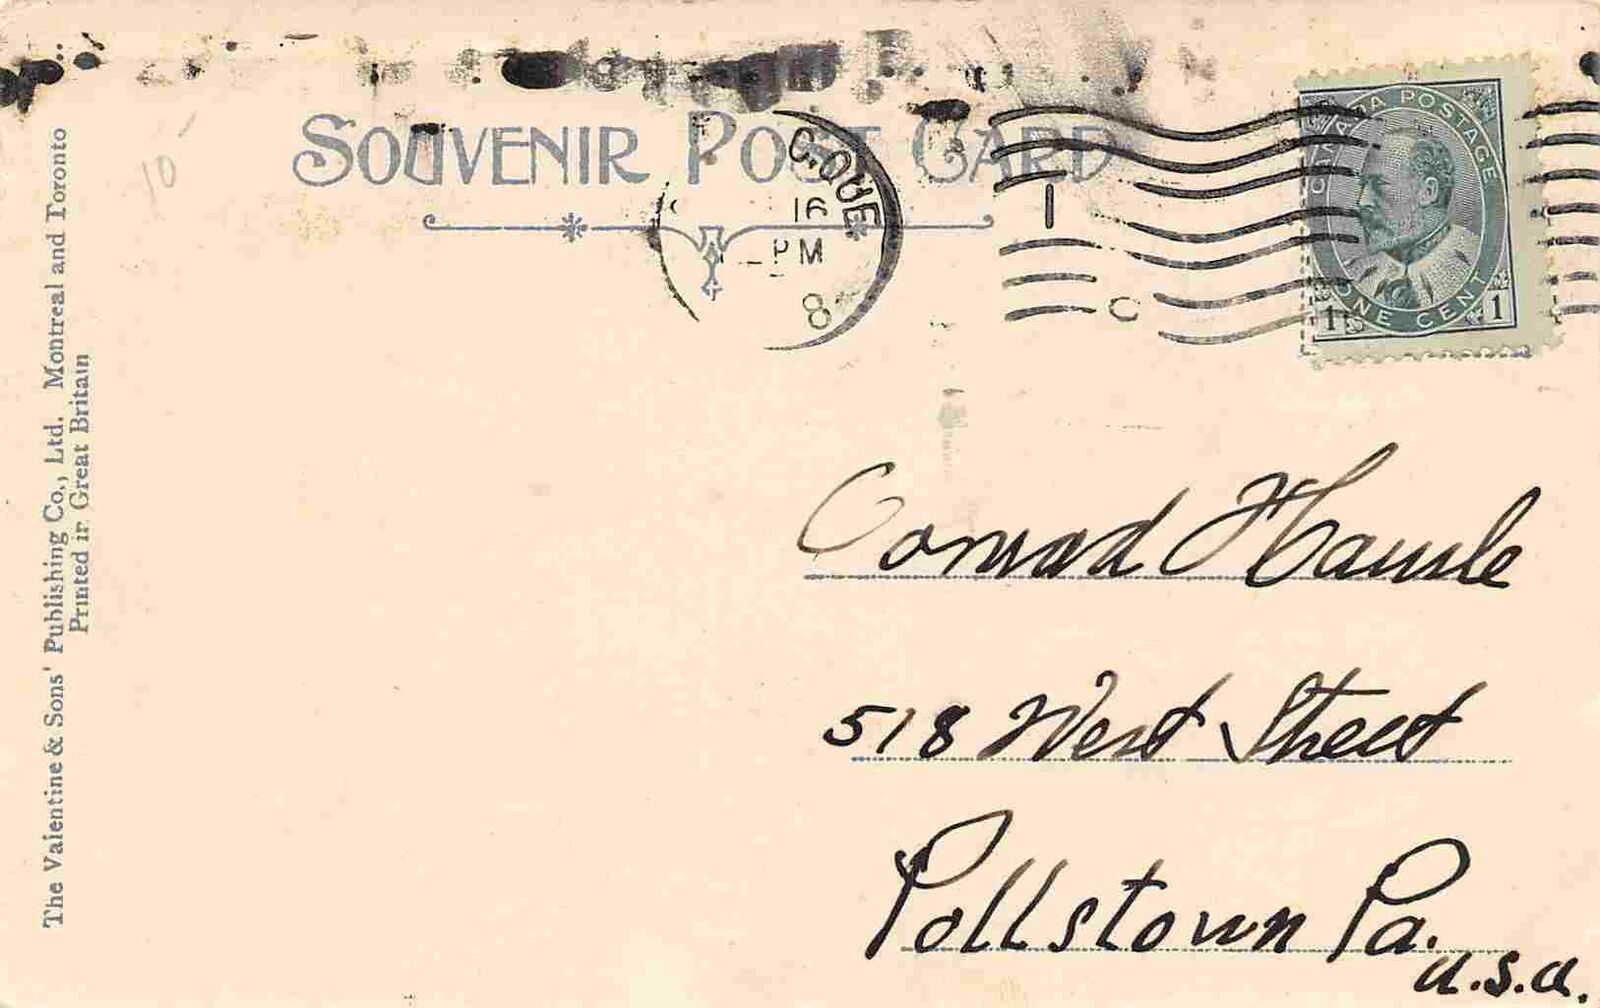 SOUVENIR POST CARD
C. QUE
16
PM
8
1
C
CANADA POSTAGE
ONE CENT
1 1
10
The Valentine & Sons' Publishing Co., Ltd. Montreal and Toronto
Printed in Great Britain
Conrad Hausle
518 West Street
Pottstown Pa.
U.S.A.